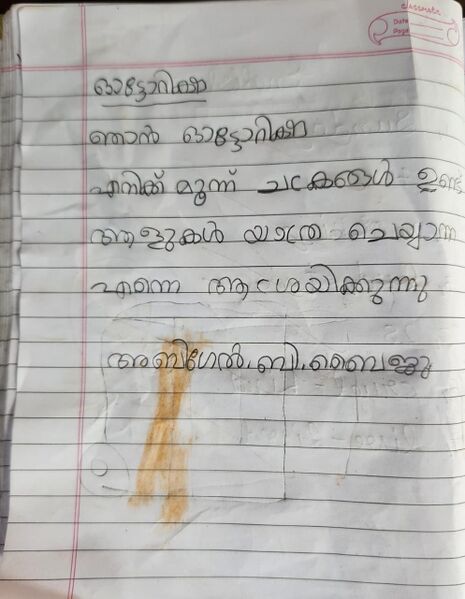 classmate
Date
Page
ഓട്ടോറിക്ഷ
ഞാൻ ഓട്ടോറിക്ഷ
എനിക്ക് മൂന്ന് ചക്രങ്ങൾ ഉണ്ട്
ആളുകൾ യാത്ര ചെയ്യാന്ന
എന്നെ ആശ്രയിക്കുന്നു
അബിഗേൽ.ബി.ബൈജു